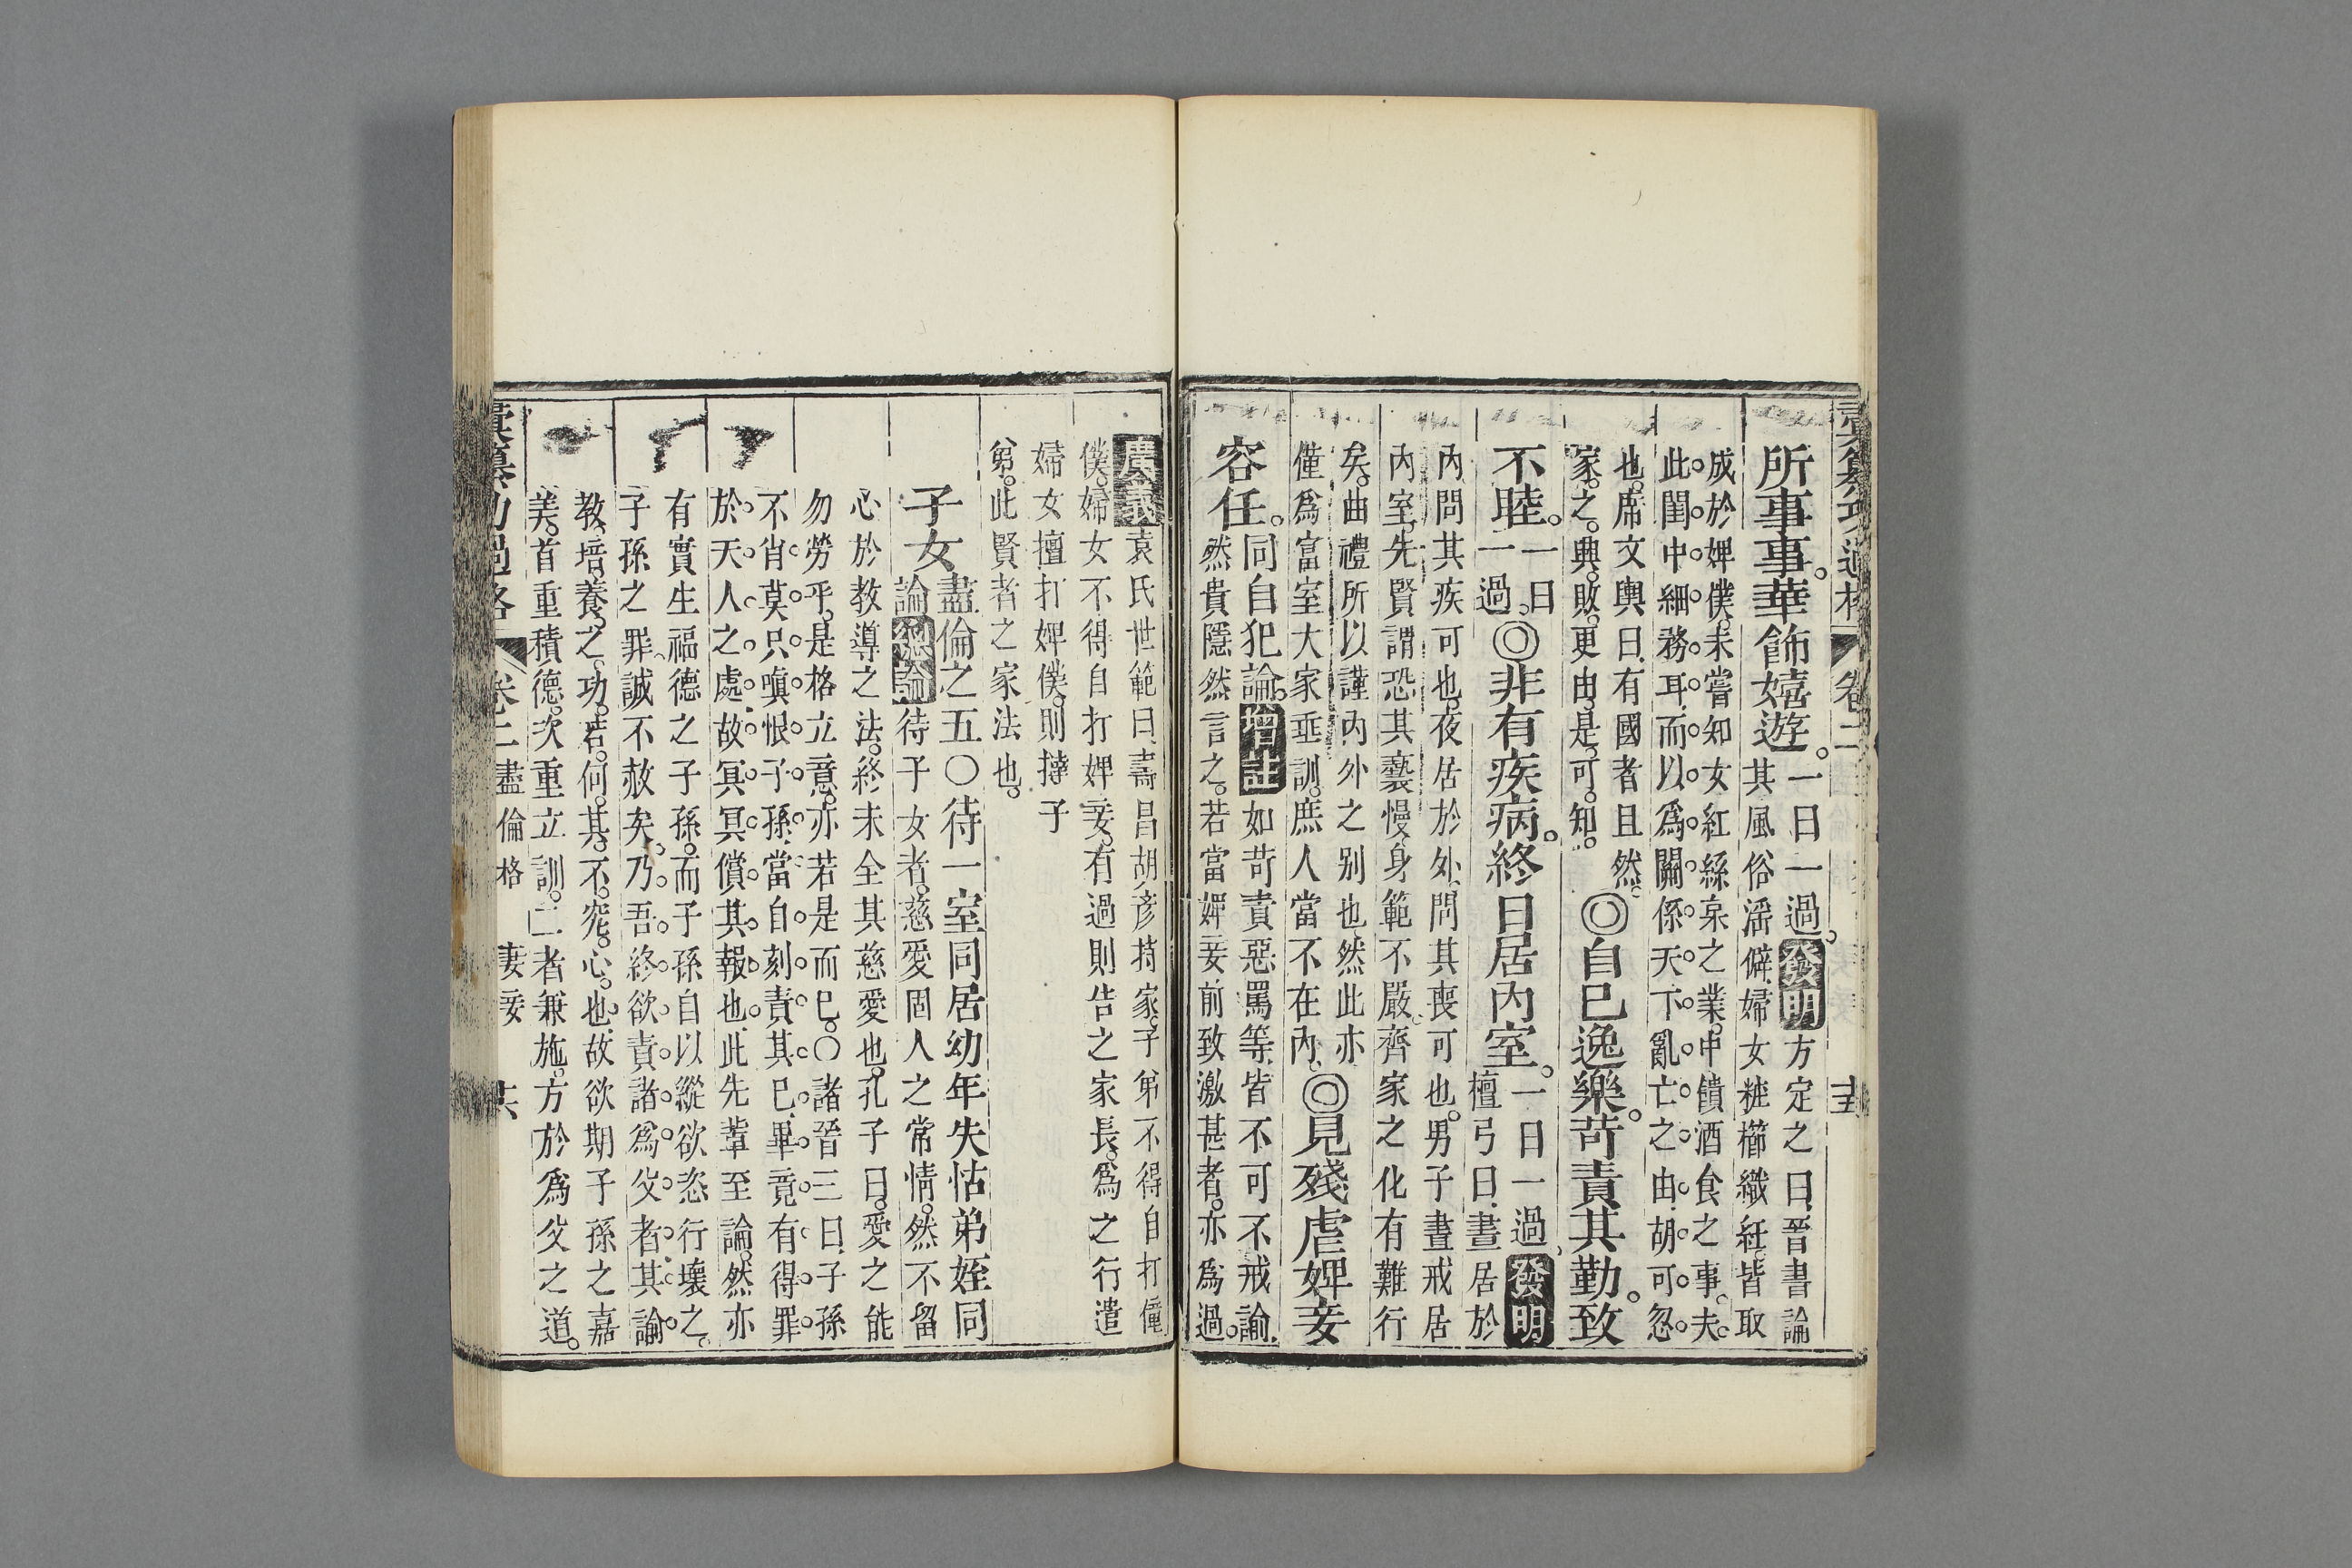 彙纂功過格 卷二
所事事。華飾嬉遊。一日一過。發明方定之曰。晉書論
其風俗淫僻。婦女粧櫛織紝。皆取
成於婢僕。未嘗知女紅絲枲之業。中饋酒食之事。夫
此閨中細務耳。而以爲關係天下亂亡之由。胡可忽
也。席文輿曰。有國者且然。
家之興敗。更由是可知。◎自己逸樂。苛責其勤。致
不睦。一日一過。◎非有疾病。終日居內室。一日一過。發明
檀弓曰。晝居於
內。問其疾可也。夜居於外。問其喪可也。男子晝戒居
內室。先賢謂恐其褻慢。身範不嚴。齊家之化有難行
矣。曲禮所以謹內外之別也。然此亦
僅爲富室大家垂訓。庶人當不在內。◎見殘虐婢妾
容任。同自犯論。增註如苛責惡罵等。皆不可不戒諭。
然貴隱然言之。若當婢妾前致激甚者。亦爲過。
廣義袁氏世範曰。壽昌胡彥持家。子弟不得自打僮
僕。婦女不得自打婢妾。有過則告之家長。爲之行遣
婦女擅打婢僕。則撻子
弟。此賢者之家法也。
子女盡倫之五〇待一室同居幼年失怙弟姪同
論總論待子女者。慈愛固人之常情。然不留
心於教導之法。終未全其慈愛也。孔子曰。愛之能
勿勞乎。是格立意。亦若是而已。〇諸晉三曰。子孫
不肖。莫只嗔恨子孫。當自刻責其己。畢竟有得罪
於天人之處。故冥冥償其報也。此先輩至論。然亦
有實生福德之子孫。而子孫自以縱欲恣行壞之。
子孫之罪誠不赦矣。乃吾終欲責諸爲父者。其論
教培養之功。若何其不究心也。故欲期子孫之嘉
美。首重積德。次重立訓。二者兼施。方於爲父之道。
彙纂功過格 卷二 盡倫格 妻妾 共